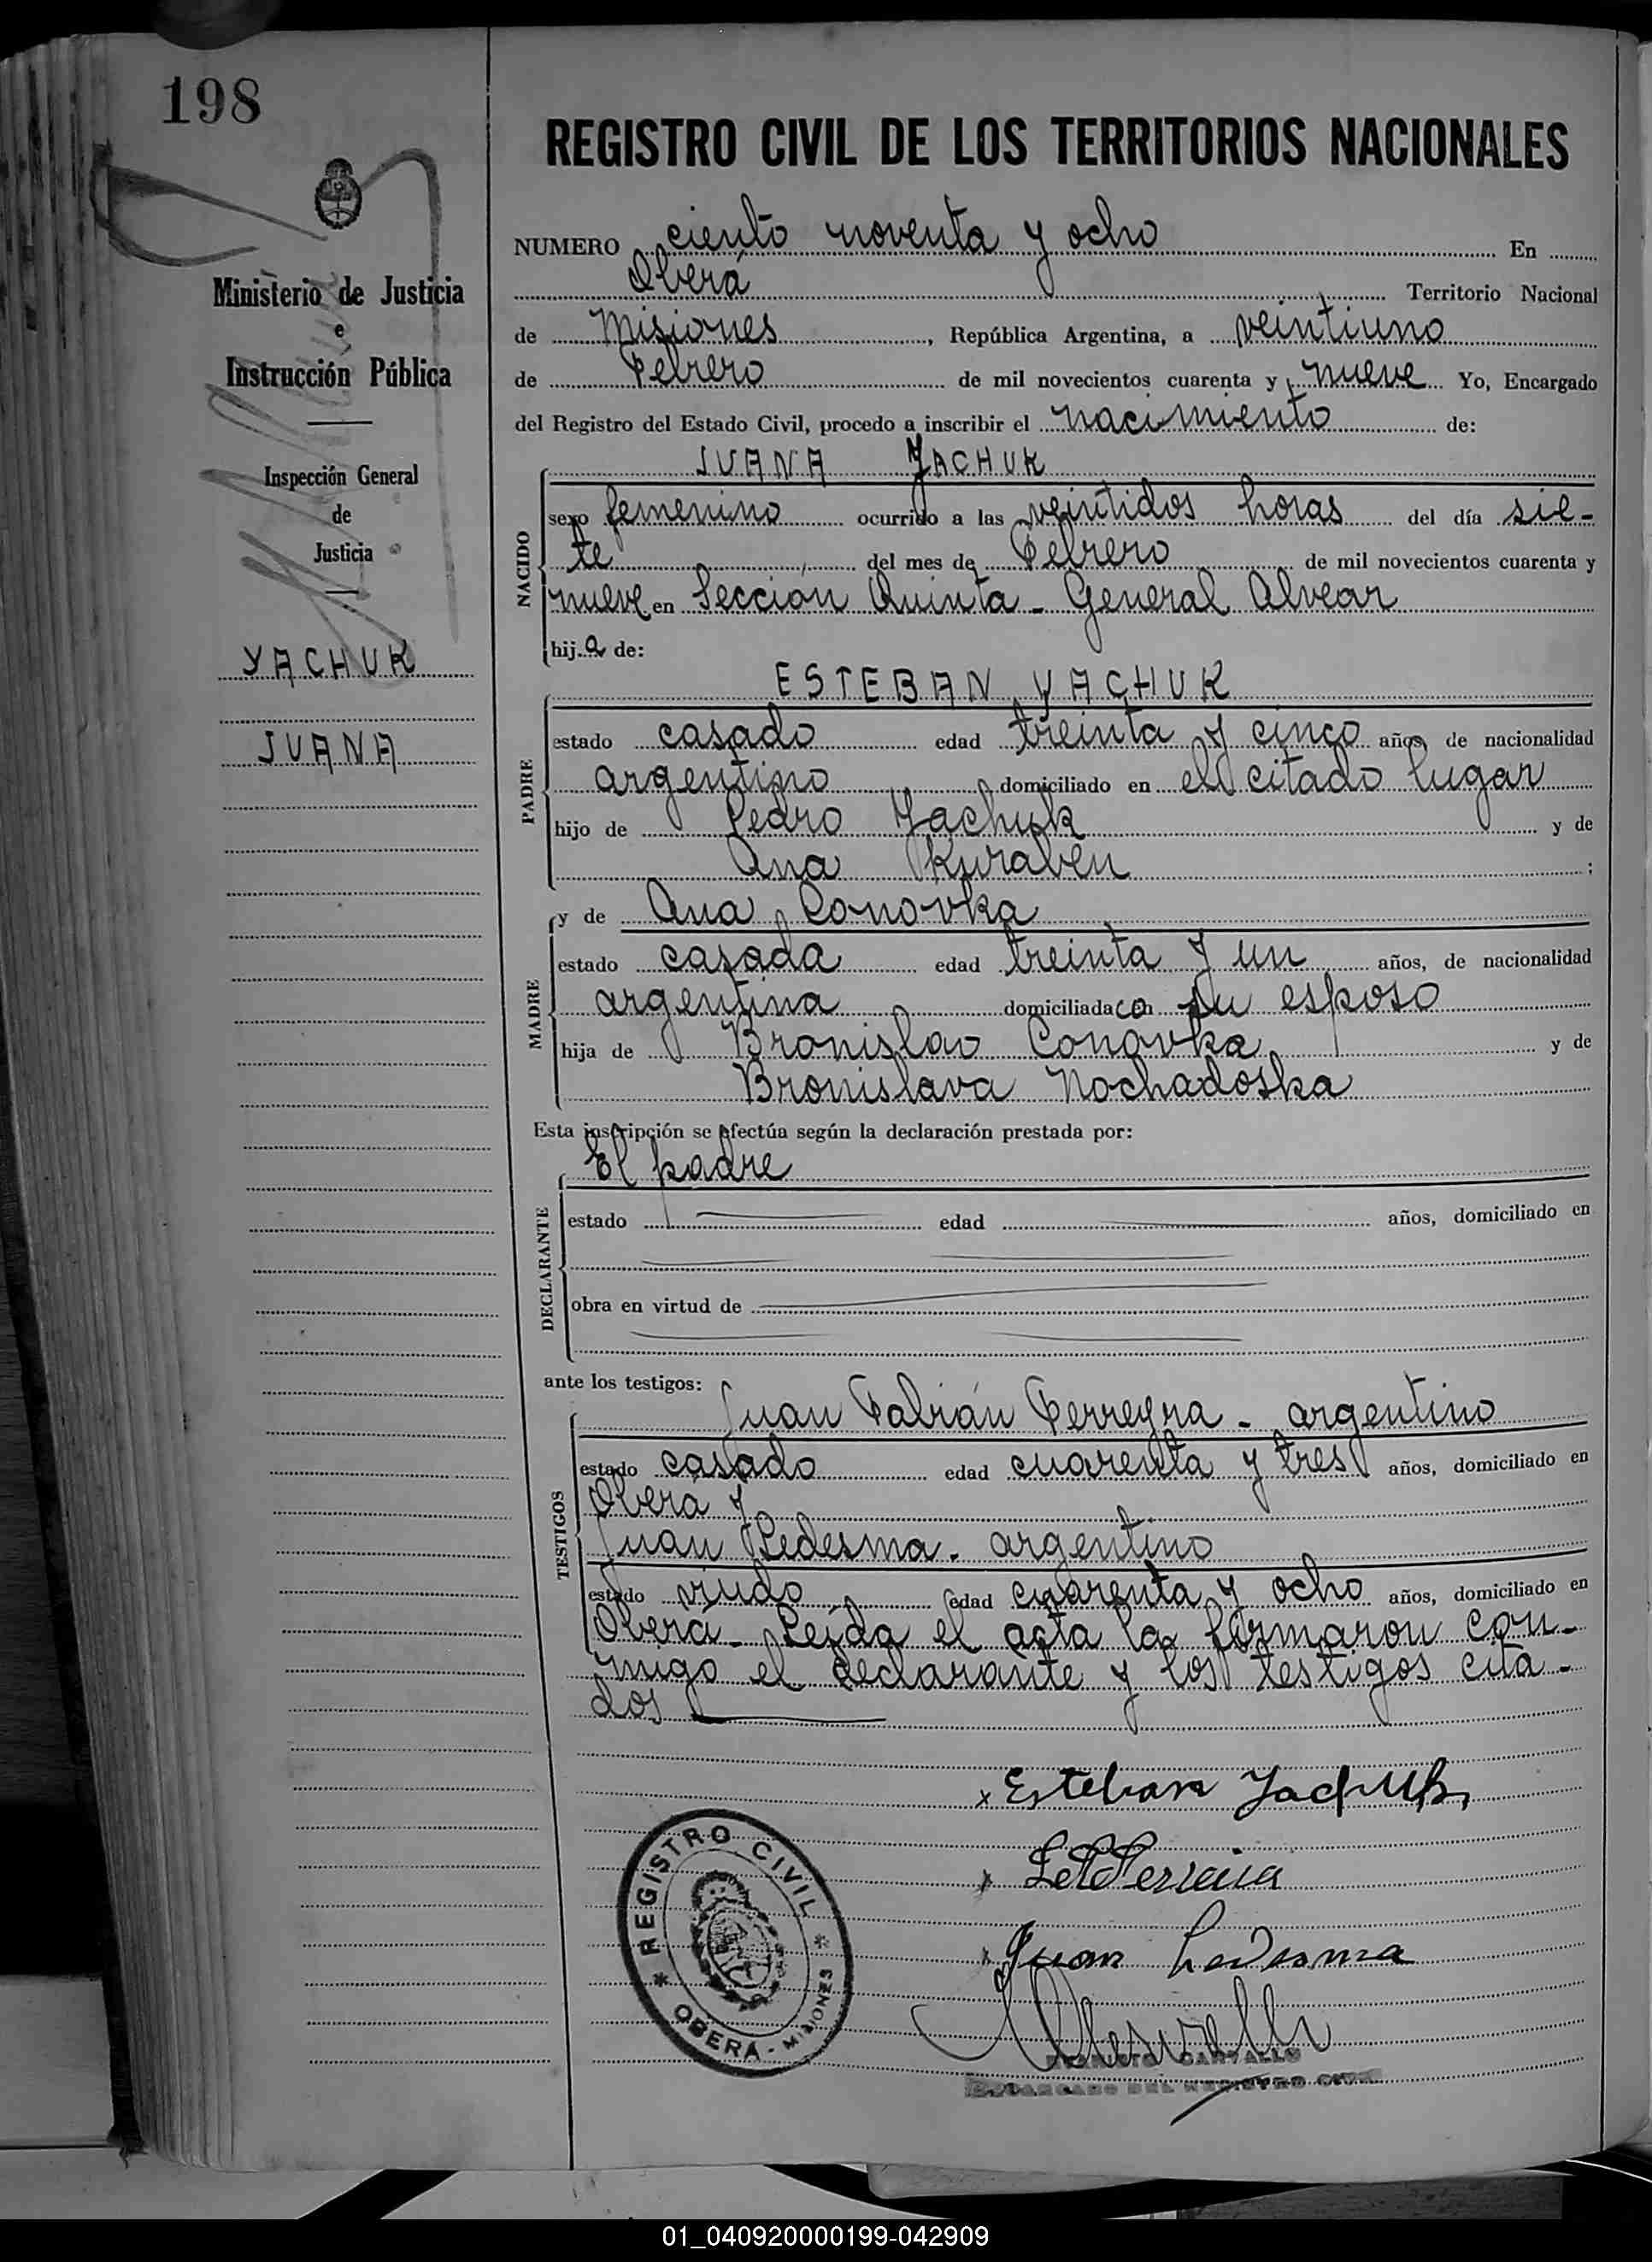 198
Ministerio de Justicia
e
Instrucción Pública
Inspección General
de
Justicia
YACHUK
JUANA
REGISTRO CIVIL DE LOS TERRITORIOS NACIONALES
NUMERO ciento noventa y ocho En
Oberá Territorio Nacional
de Misiones, República Argentina, a veintiuno
de Febrero de mil novecientos cuarenta y nueve Yo, Encargado
del Registro del Estado Civil, procedo a inscribir el nacimiento de:
JUANA YACHUK
NACIDO
sexo femenino ocurrido a las veintidos horas del día sie-
te del mes de Febrero de mil novecientos cuarenta y
nueve en Sección Quinta - General Alvear
hija de:
ESTEBAN YACHUK
PADRE
estado casado edad treinta y cinco años, de nacionalidad
argentino domiciliado en el citado lugar
hijo de Pedro Yachuk y de
Ana Kuraben;
y de Ana Conovka
MADRE
estado casada edad treinta y un años, de nacionalidad
argentina domiciliada con su esposo
hija de Bronislao Conovka y de
Bronislava Nochadoska
Esta inscripción se efectúa según la declaración prestada por:
El padre
DECLARANTE
estado edad años, domiciliado en
obra en virtud de
ante los testigos:
Juan Fabián Ferreyra - argentino
TESTIGOS
estado casado edad cuarenta y tres años, domiciliado en
Oberá y
Juan Ledesma - argentino
estado viudo edad cuarenta y ocho años, domiciliado en
Oberá - Leída el acta la firmaron con-
migo el declarante y los testigos cita-
dos
x Esteban Yachuk
Juan Ledesma
REGISTRO CIVIL
OBERA - MISIONES
CARVALLO
ENCARGADO DEL REGISTRO CIVIL
01_040920000199-042909